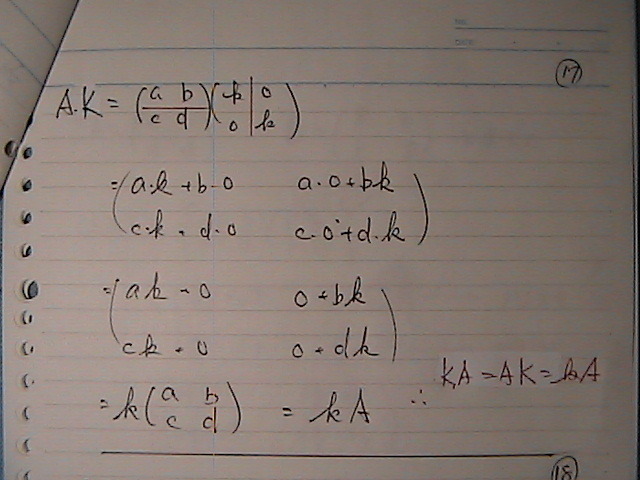 NO.
DATE
⑰
A.K = (a b / c d)(k 0 / 0 k)
= (a.k + b.0   a.0 + bk
c.k + d.0   c.0 + d.k)
= (ak + 0   0 + bk
ck + 0   0 + dk)
= k(a b / c d) = kA ∴ KA = AK = kA
⑱